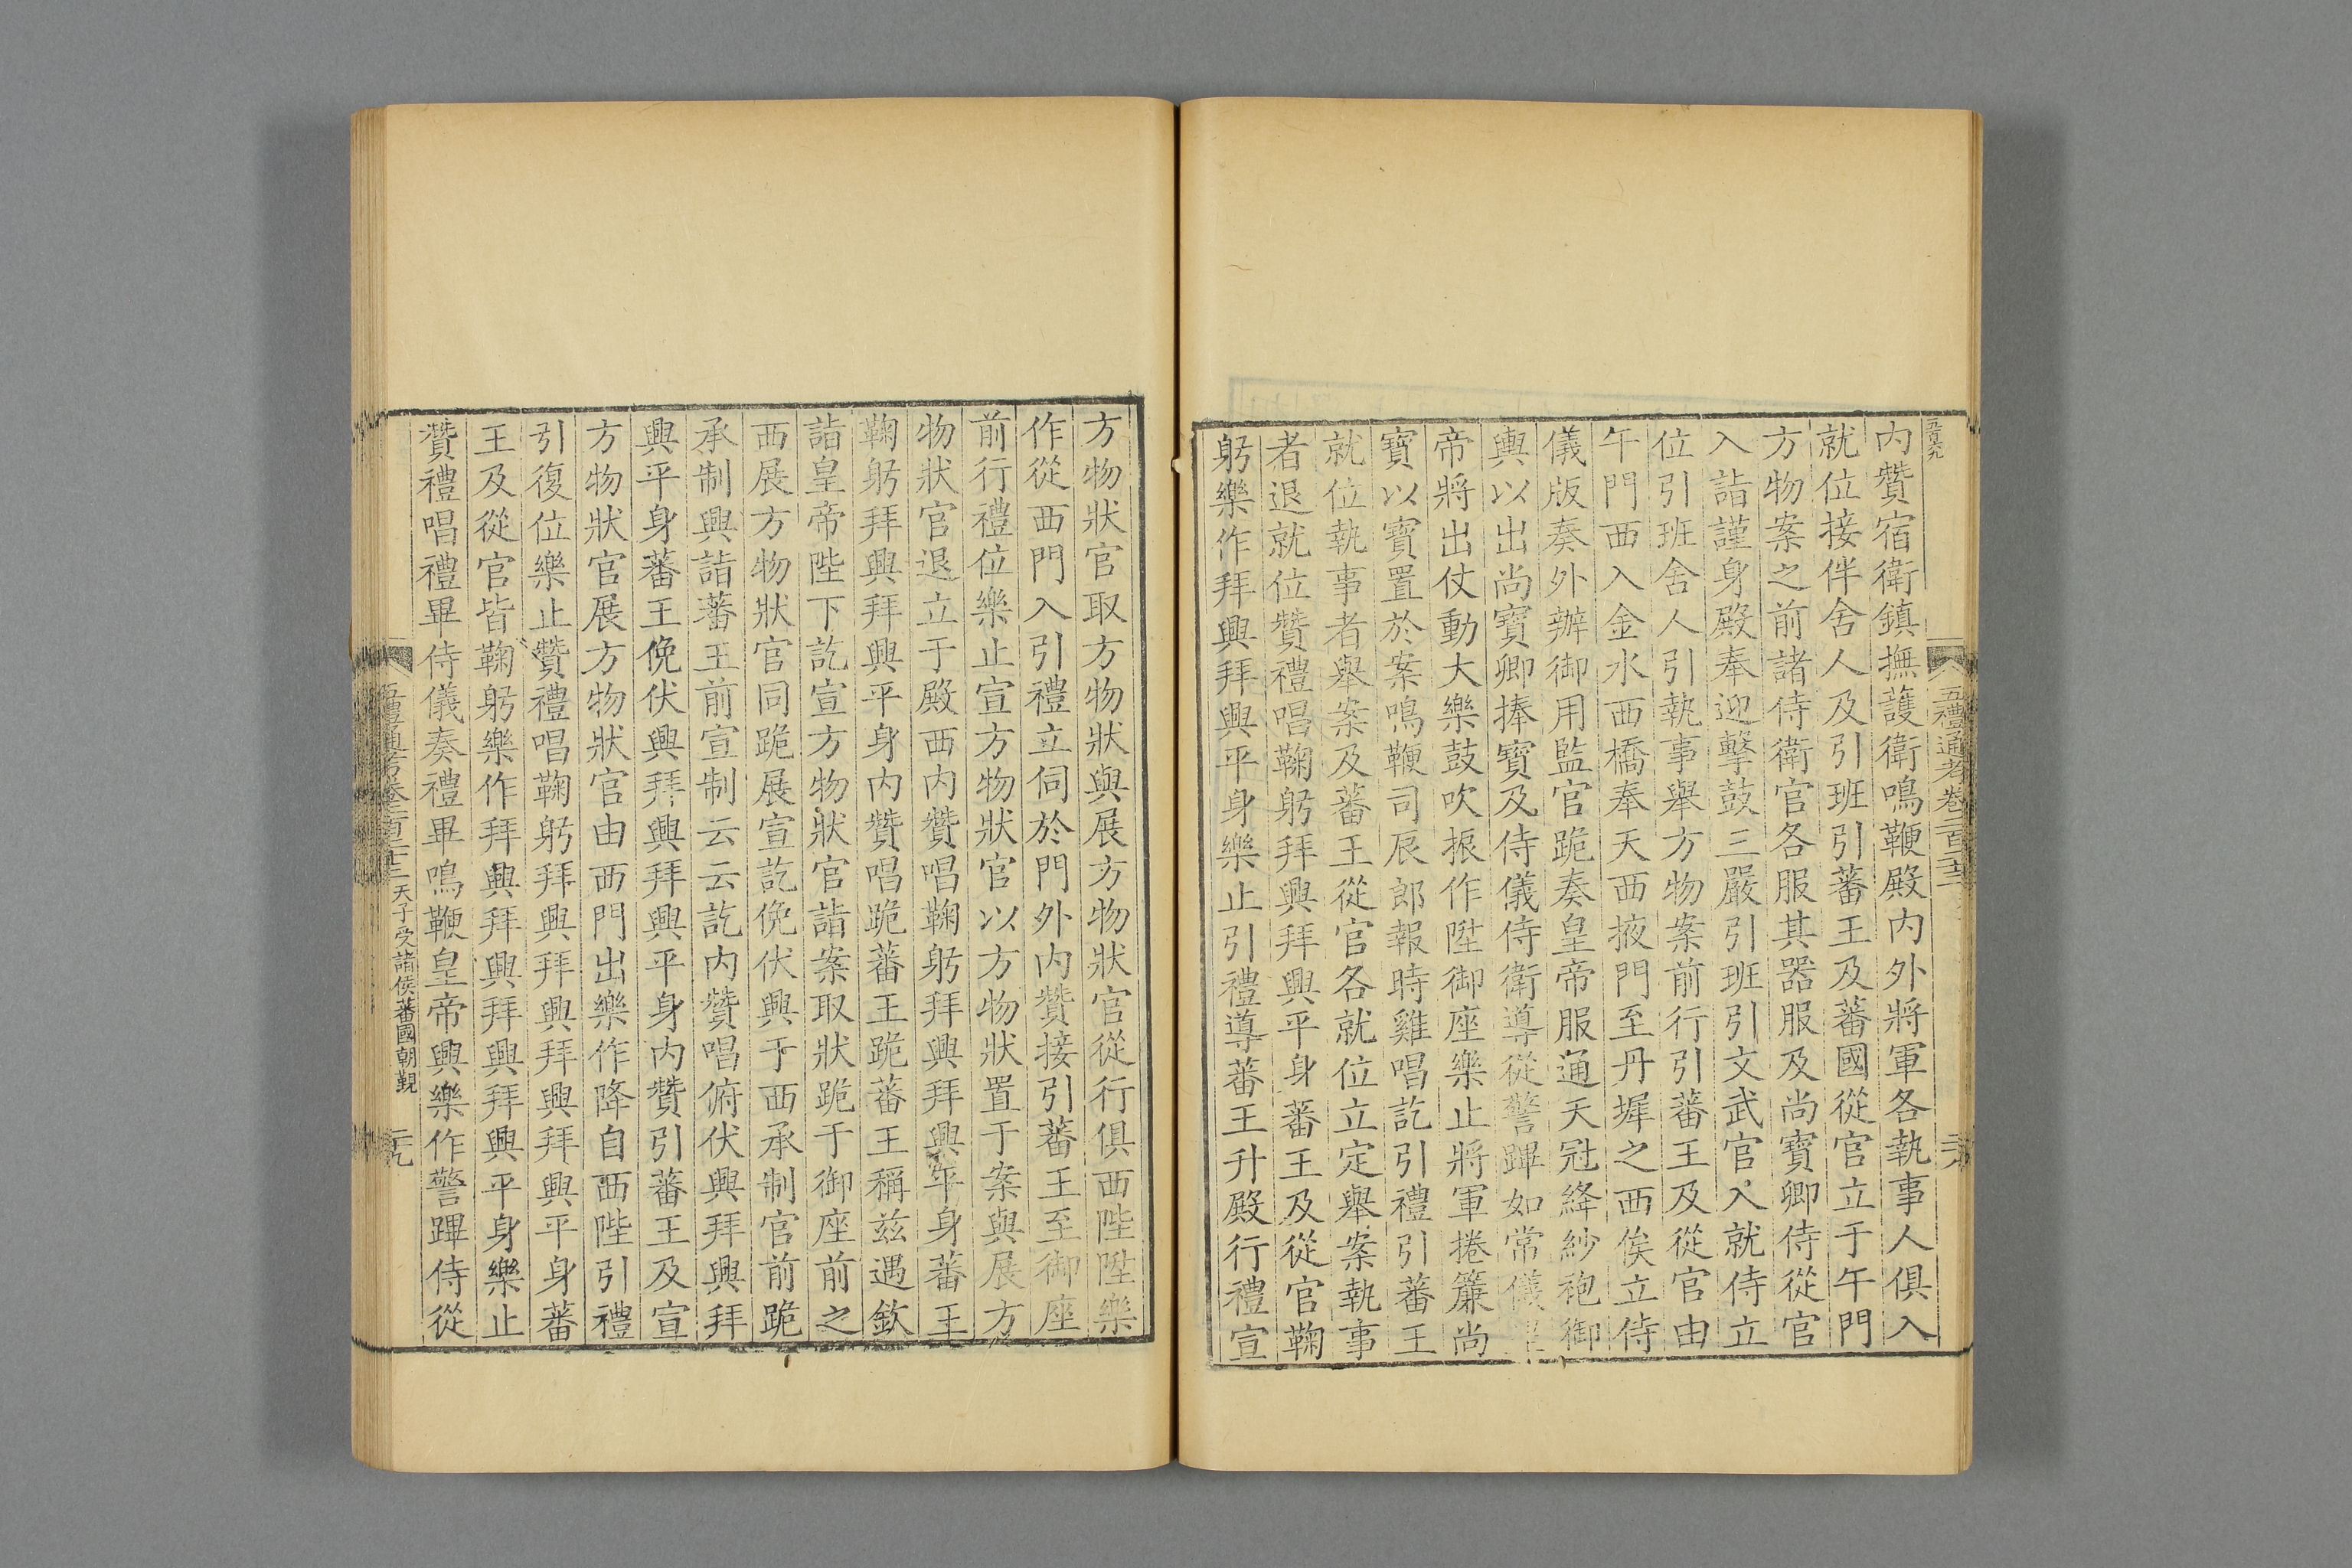 五禮通考卷二百二十
內贊宿衛鎮撫護衛鳴鞭殿內外將軍各執事人俱入
就位接伴舍人及引班引蕃王及蕃國從官立于午門
方物案之前諸侍衛官各服其器服及尚寶卿侍從官
入詣謹身殿奉迎擊鼓三嚴引班引文武官入就侍立
位引班舍人引執事舉方物案前行引蕃王及從官由
午門西入金水西橋奉天西掖門至丹墀之西俟立侍
儀版奏外辦御用監官跪奏皇帝服通天冠絳紗袍御
輿以出尚寶卿捧寶及侍儀侍衛導從警蹕如常儀
帝將出仗動大樂鼓吹振作陞御座樂止將軍捲簾尚
寶以寶置於案鳴鞭司辰郎報時雞唱訖引禮引蕃王
就位執事者舉案及蕃王從官各就位立定舉案執事
者退就位贊禮唱鞠躬拜興拜興平身蕃王及從官鞠
躬樂作拜興拜興平身樂止引禮導蕃王升殿行禮宣
方物狀官取方物狀與展方物狀官從行俱西陛陞樂
作從西門入引禮立伺於門外內贊接引蕃王至御座
前行禮位樂止宣方物狀官以方物狀置于案與展方
物狀官退立于殿西內贊唱鞠躬拜興拜興平身蕃王
鞠躬拜興拜興平身內贊唱跪蕃王跪蕃王稱茲遇欽
詣皇帝陛下訖宣方物狀官詣案取狀跪于御座前之
西展方物狀官同跪展宣訖俛伏興于西承制官前跪
承制興詣蕃王前宣制云云訖內贊唱俯伏興拜興拜
興平身蕃王俛伏興拜興拜興平身內贊引蕃王及宣
方物狀官展方物狀官由西門出樂作降自西陛引禮
引復位樂止贊禮唱鞠躬拜興拜興拜興拜興平身蕃
王及從官皆鞠躬樂作拜興拜興拜興拜興平身樂止
贊禮唱禮畢侍儀奏禮畢鳴鞭皇帝興樂作警蹕侍從
天子受諸侯蕃國朝覲
二九